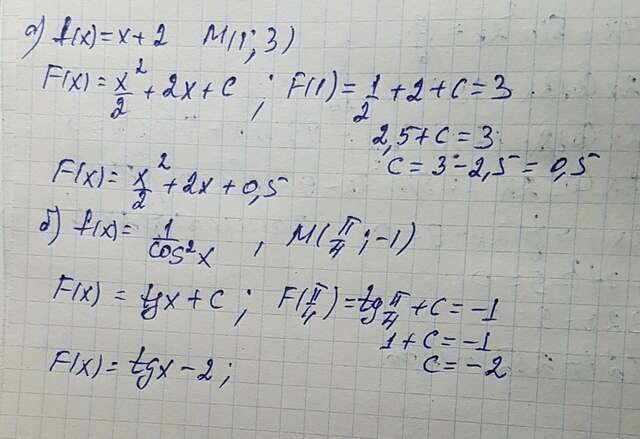 а) f(x) = x + 2   M(1; 3)
F(x) = x²/2 + 2x + C ; F(1) = 1/2 + 2 + C = 3
2,5 + C = 3
C = 3 - 2,5 = 0,5
F(x) = x²/2 + 2x + 0,5
б) f(x) = 1/cos²x , M(π/4 ; -1)
F(x) = tgx + C ; F(π/4) = tg π/4 + C = -1
1 + C = -1
C = -2
F(x) = tgx - 2 ;